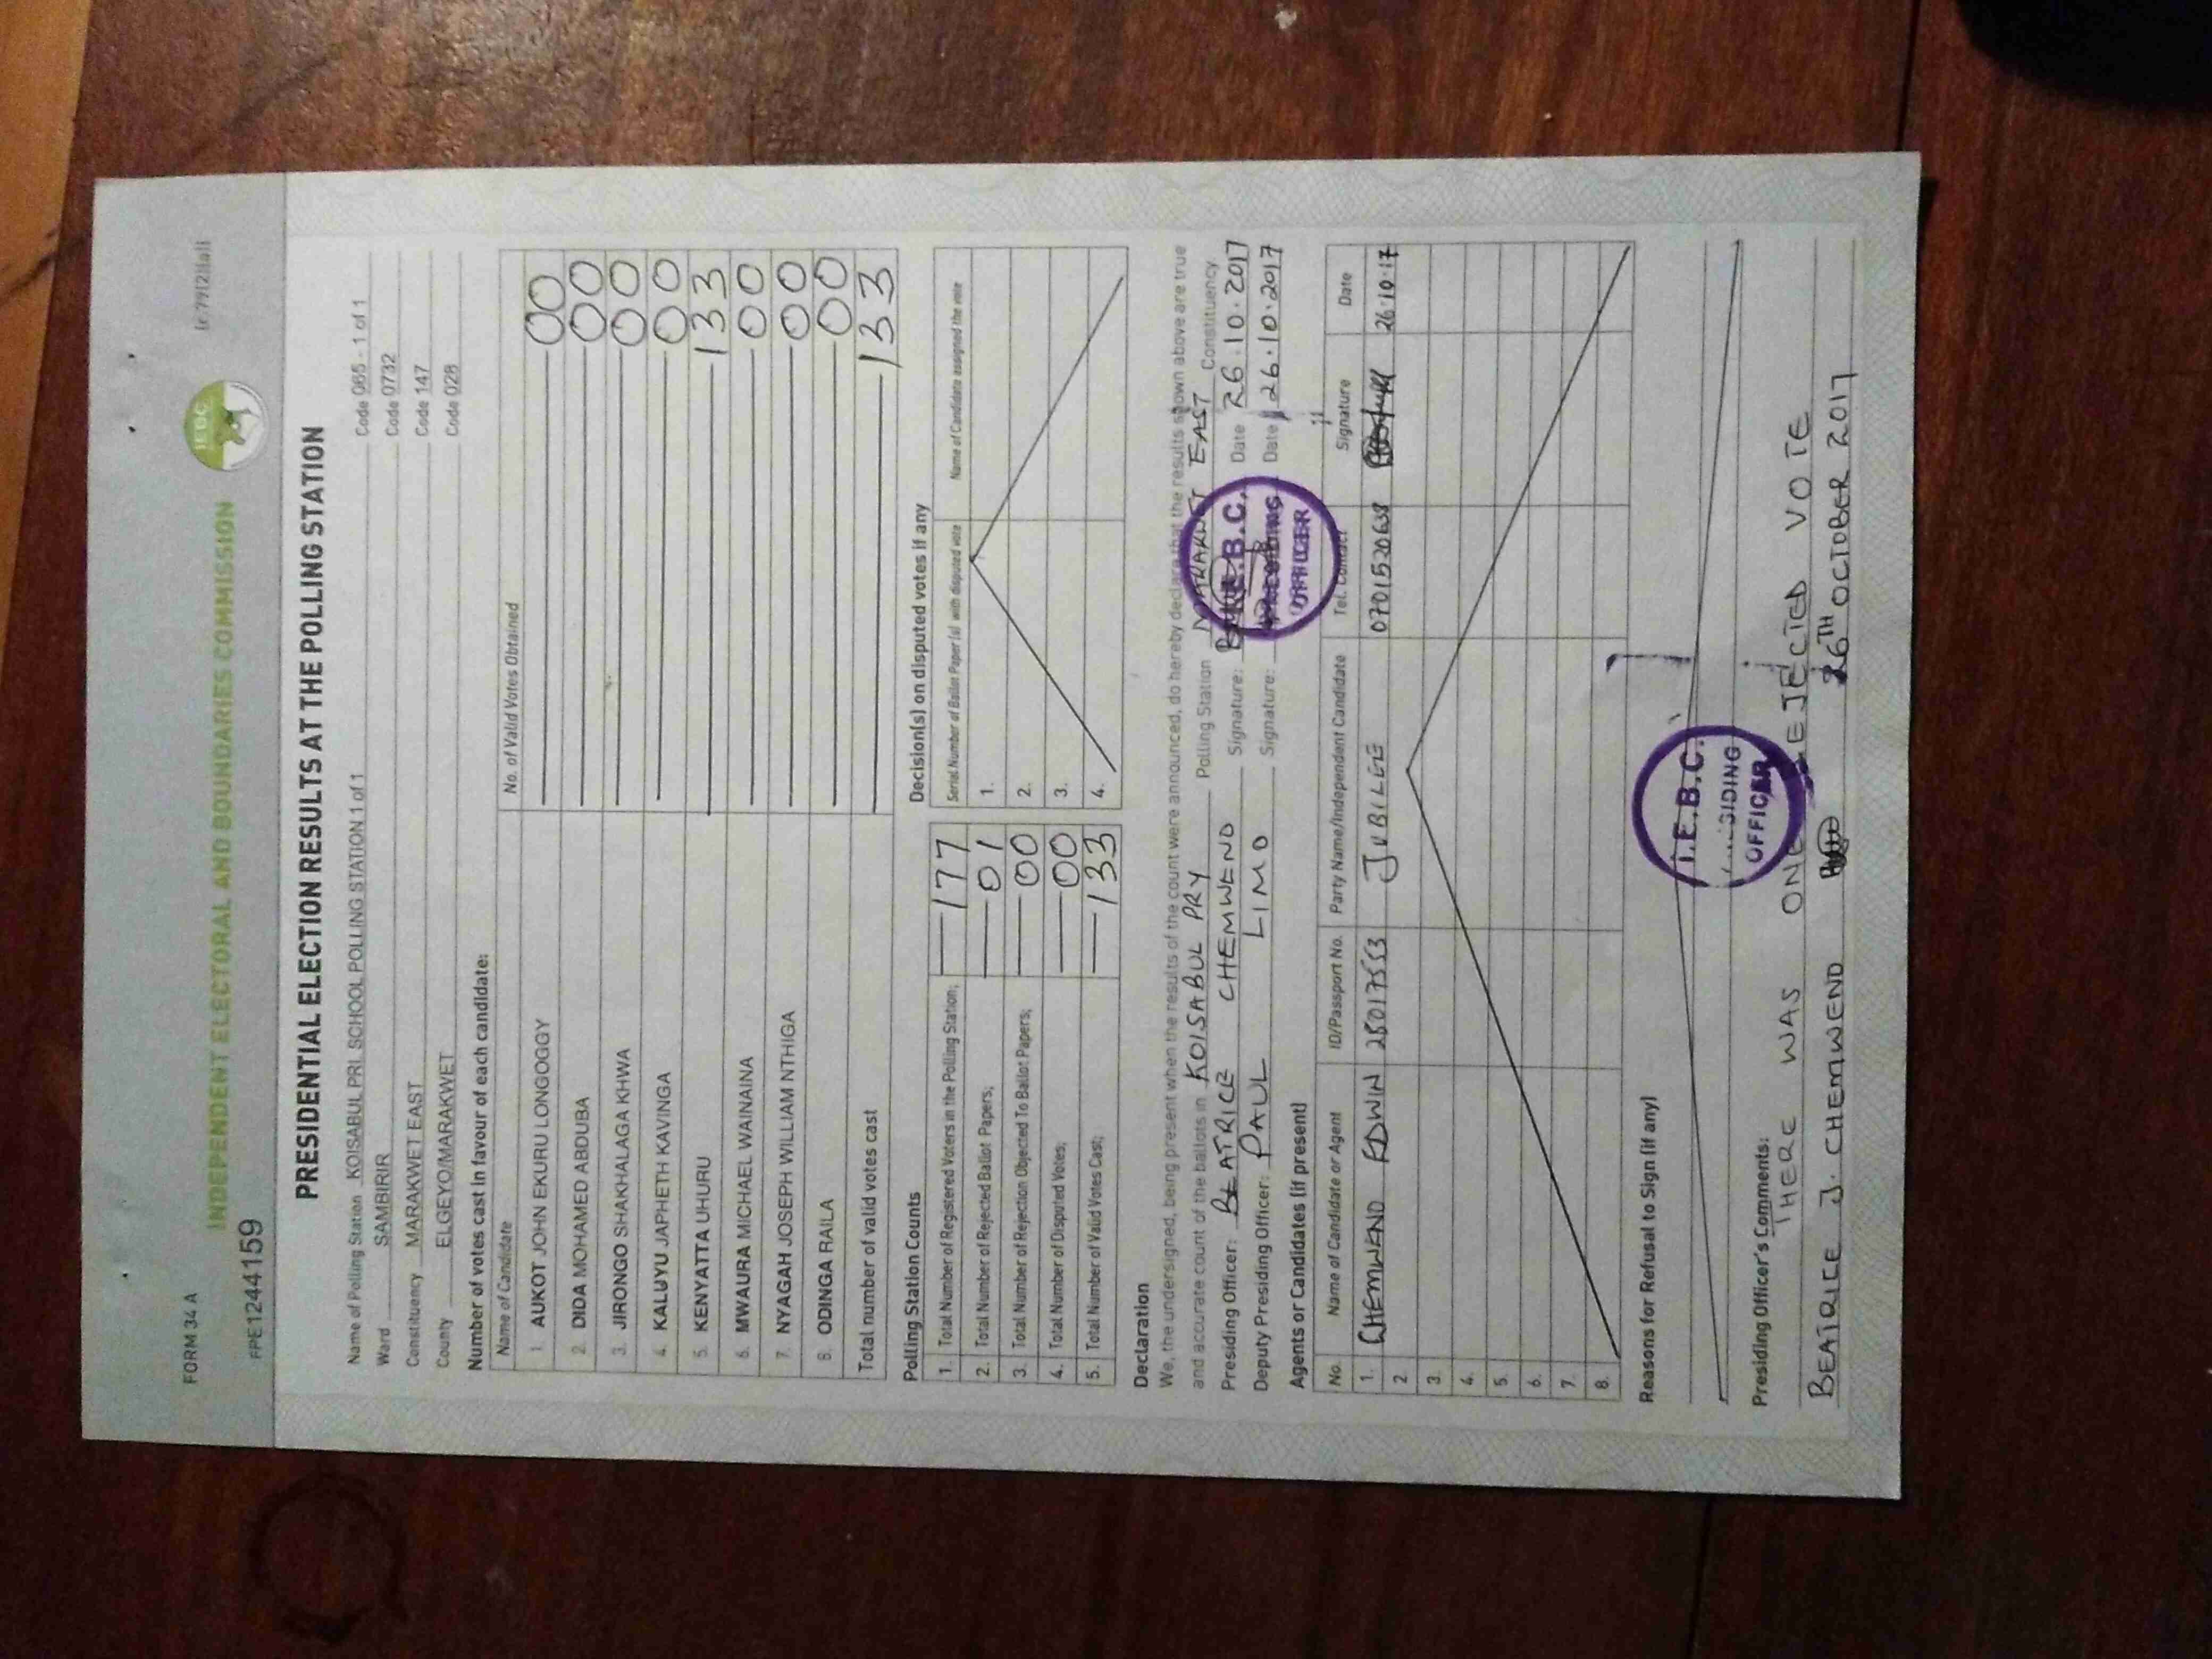 FORM 34 A
(r.79(2)(a))
INDEPENDENT ELECTORAL AND BOUNDARIES COMMISSION
IEBC
FPE1244159
PRESIDENTIAL ELECTION RESULTS AT THE POLLING STATION
Name of Polling Station KOISABUL PRI. SCHOOL POLLING STATION 1 of 1 Code 065 - 1 of 1
Ward SAMBIRIR Code 0732
Constituency MARAKWET EAST Code 147
County ELGEYO/MARAKWET Code 028
Number of votes cast in favour of each candidate:
Name of Candidate No. of Valid Votes Obtained
1. AUKOT JOHN EKURU LONGOGGY 00
2. DIDA MOHAMED ABDUBA 00
3. JIRONGO SHAKHALAGA KHWA 00
4. KALUYU JAPHETH KAVINGA 00
5. KENYATTA UHURU 133
6. MWAURA MICHAEL WAINAINA 00
7. NYAGAH JOSEPH WILLIAM NTHIGA 00
8. ODINGA RAILA 00
Total number of valid votes cast 133
Polling Station Counts
1. Total Number of Registered Voters in the Polling Station; 177
2. Total Number of Rejected Ballot Papers; 01
3. Total Number of Rejection Objected To Ballot Papers; 00
4. Total Number of Disputed Votes; 00
5. Total Number of Valid Votes Cast; 133
Decision(s) on disputed votes if any
Serial Number of Ballot Paper(s) with disputed vote Name of Candidate assigned the vote
1.
2.
3.
4.
Declaration
We, the undersigned, being present when the results of the count were announced, do hereby declare that the results shown above are true
and accurate count of the ballots in KOISABUL PRY Polling Station MARAKWET EAST Constituency
Presiding Officer: BEATRICE CHEMWENO Signature: Date 26.10.2017
Deputy Presiding Officer: PAUL LIMO Signature: Date 26.10.2017
I.E.B.C.
PRESIDING
OFFICER
Agents or Candidates (if present)
No. Name of Candidate or Agent ID/Passport No. Party Name/Independent Candidate Tel. Contact Signature Date
1. CHEMWENO EDWIN 28017553 JUBILEE 0701520638 26.10.17
2.
3.
4.
5.
6.
7.
8.
Reasons for Refusal to Sign (if any)
I.E.B.C.
SIDING
OFFICER
Presiding Officer's Comments:
THERE WAS ONE REJECTED VOTE
BEATRICE J. CHEMWENO 26TH OCTOBER 2017